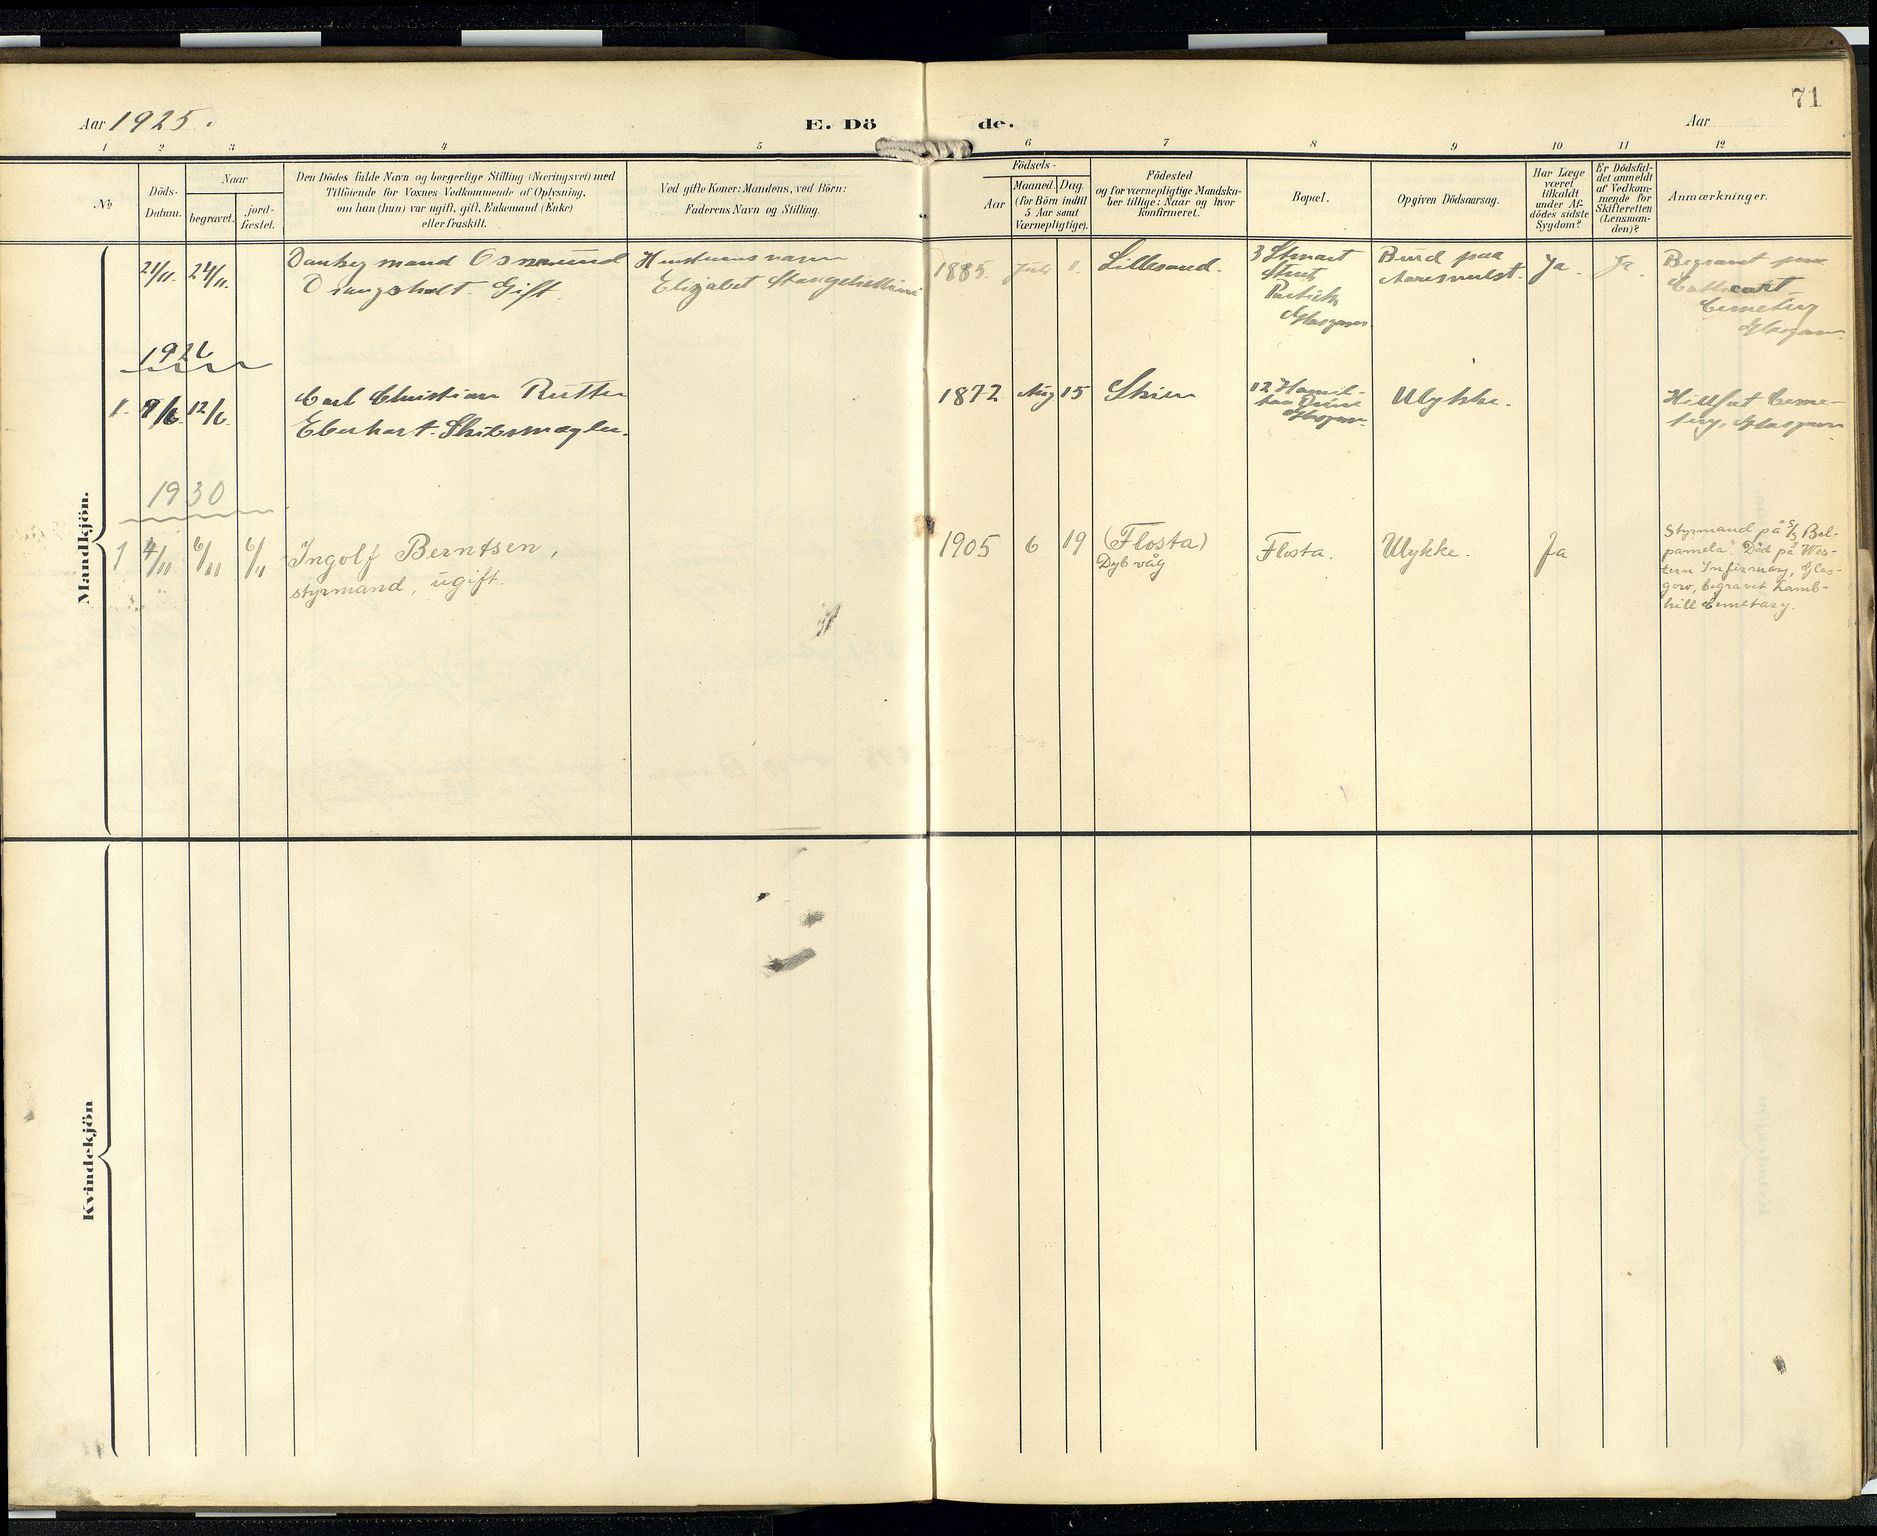 71
Aar 1925.
E. Dö de.
Aar
1 2 3 4 5 6 7 8 9 10 11 12
No
Döds-
Datum.
Naar
begravet.
jord-
fæstet.
Den Dödes fulde Navn og borgerlige Stilling (Næringsvei) med
Tilföiende for Voxnes Vedkommende af Oplysning,
om han (hun) var ugift, gift, Enkemand (Enke)
eller fraskilt.
Ved gifte Koner: Mandens, ved Börn:
Faderens Navn og Stilling.
Födsels-
Aar
Maaned. Dag.
(for Börn indtil
5 Aar samt
Værnepligtige).
Födested
og for værnepligtige Mandska-
ber tillige: Naar og hvor
konfirmeret.
Bopæl.
Opgiven Dödsaarsag.
Har Læge
været
tilkaldt
under Af-
dödes sidste
Sygdom?
Er Dödsfal-
det anmeldt
af Vedkom-
mende for
Skifteretten
(Lensman-
den)?
Anmærkninger.
Mandkjön.
21/11. 24/11.
Osmund
Drangsholt. Gift.
Hustruens navn
Elizabet
1885. July 11.
Lillesand.
3 Stewart
Street
Partick
Glasgow.
Brud paa
Ja.
Ja.
Begravet paa
Cathcart
Cemetery
Glasgow.
1926
1. 9/6. 12/6.
Carl Christian Rutter
Eberhart. Skibsmægler.
1872 Aug 15
Skien
12 Hamil-
ton Drive
Glasgow.
Ulykke.
Ceme-
tery, Glasgow
1930
1 4/11 6/11 6/11
Ingolf Berntsen,
styrmand, ugift.
1905 6 19
(Flosta)
Dybvåg
Flosta.
Ulykke.
Ja
Styrmand på S/S "Bel-
pamela". Död på "Wes-
tern Infirmary, Glas-
gow, begravet Lamb-
hill Cemetary.
Kvindekjön